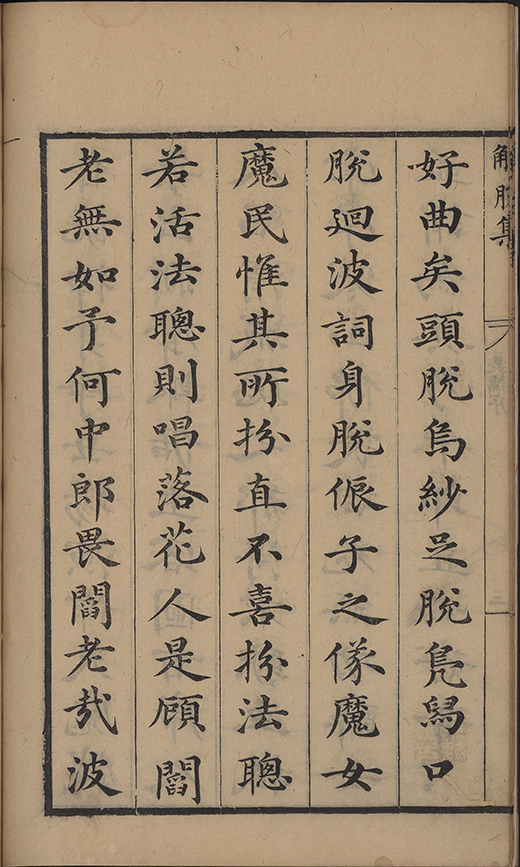 解脫集
三
好曲矣頭脫烏紗足脫鳧舃口
脫迴波詞身脫侲子之㒸魔女
魔民惟其所扮直不喜扮法聰
若活法聰則唱落花人是頋閻
老無如予何中郎畏閻老㢤波